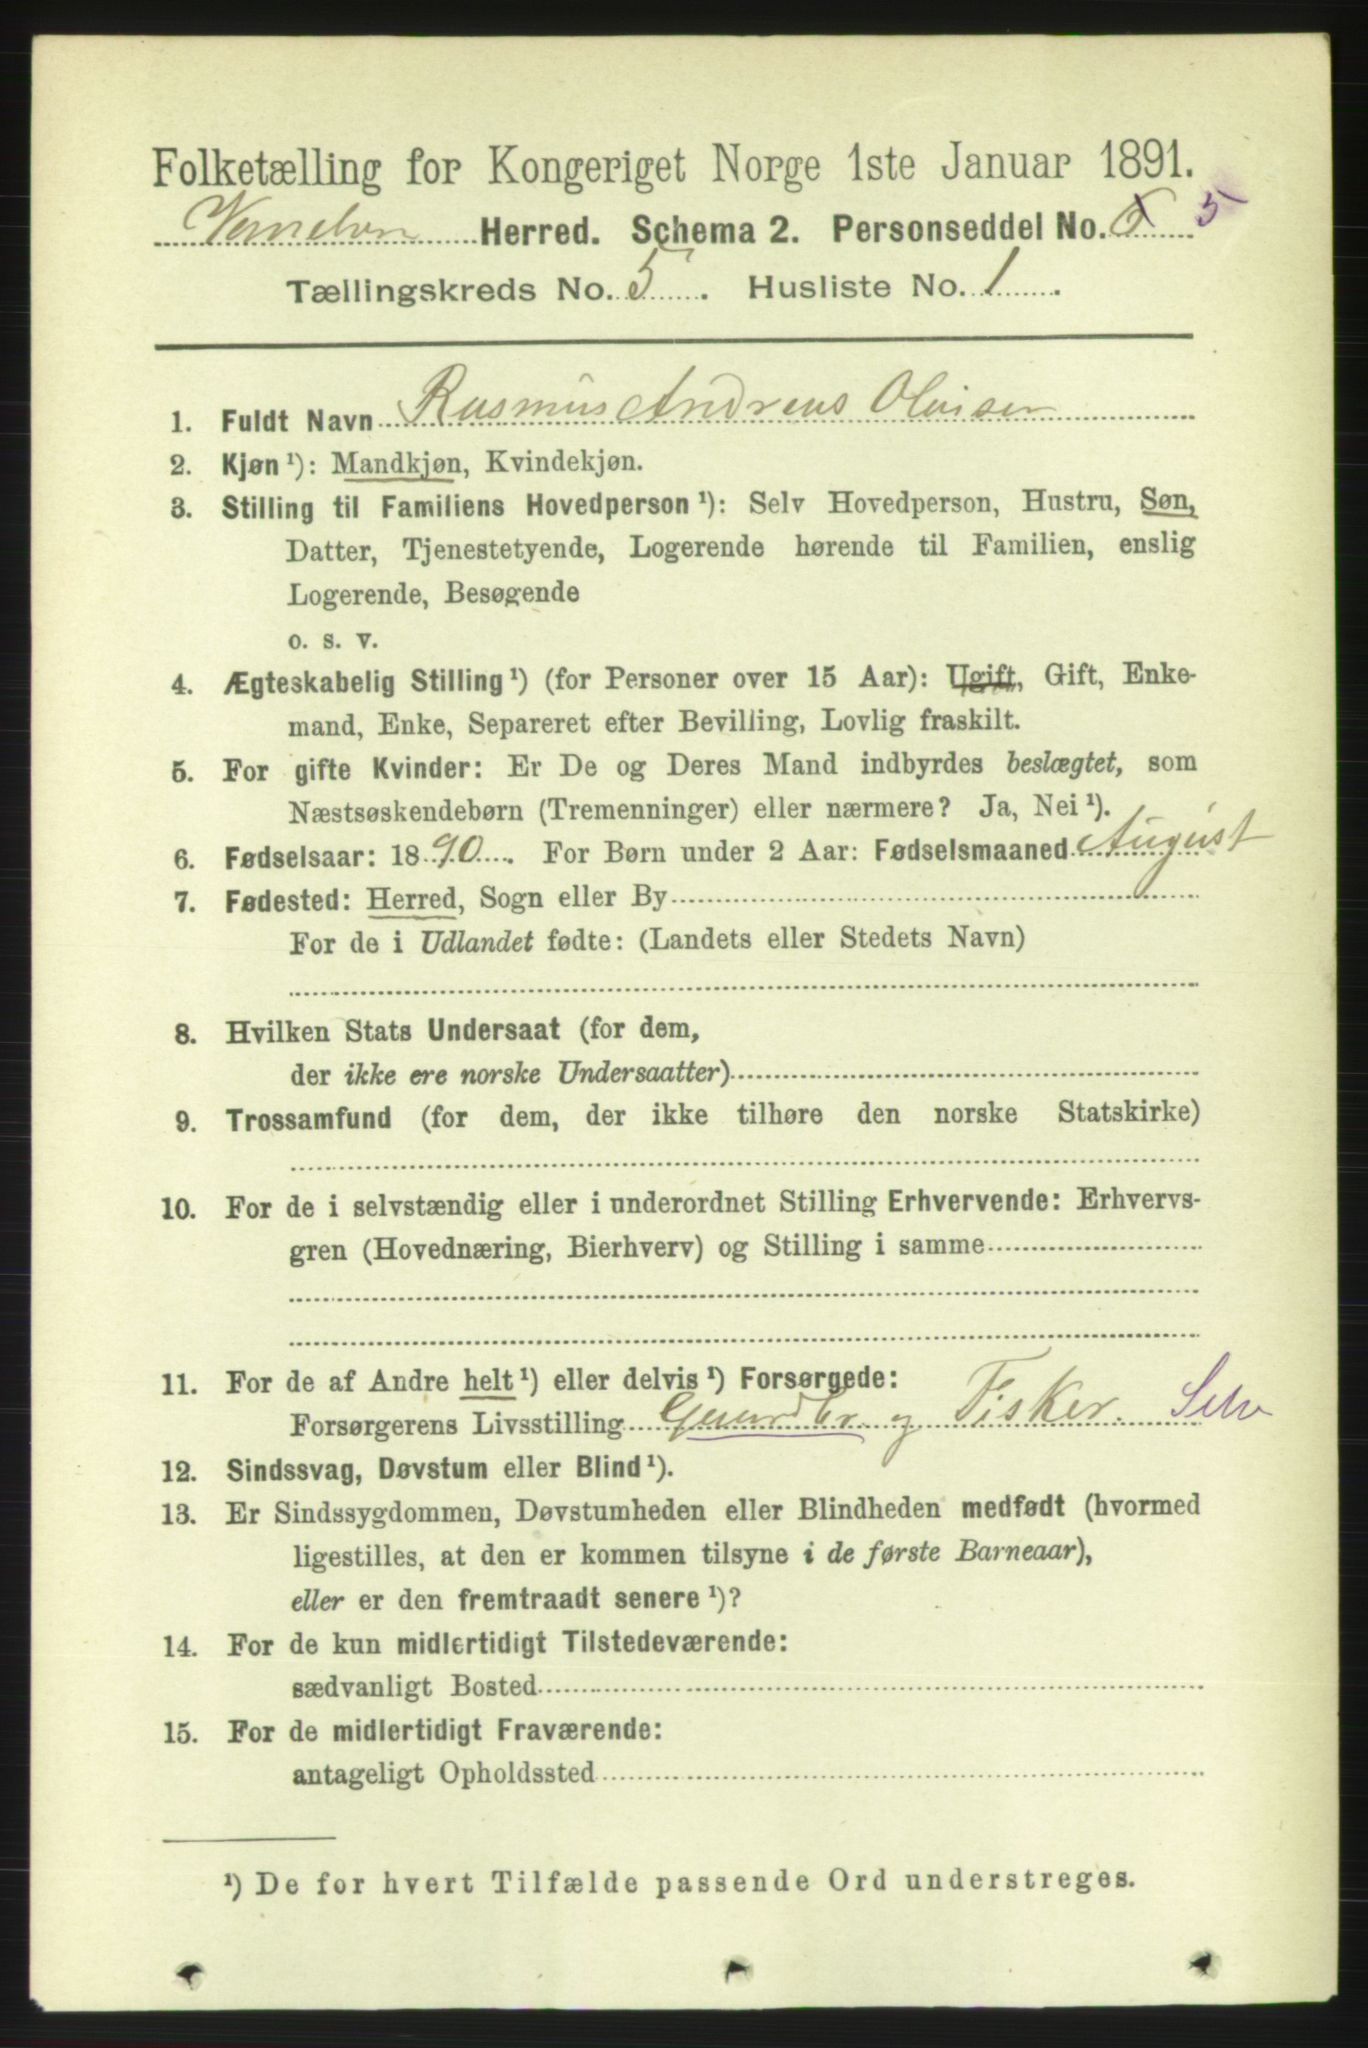 Folketælling for Kongeriget Norge 1ste Januar 1891.
Herred. Schema 2. Personseddel No. 6 5
Tællingskreds No. 5. Husliste No. 1.
1. Fuldt Navn Rasmus Andreas Olaisen
2. Kjøn ¹): Mandkjøn, Kvindekjøn.
3. Stilling til Familiens Hovedperson ¹): Selv Hovedperson, Hustru, Søn,
Datter, Tjenestetyende, Logerende hørende til Familien, enslig
Logerende, Besøgende
o. s. v.
4. Ægteskabelig Stilling ¹) (for Personer over 15 Aar): Ugift, Gift, Enke-
mand, Enke, Separeret efter Bevilling, Lovlig fraskilt.
5. For gifte Kvinder: Er De og Deres Mand indbyrdes beslægtet, som
Næstsøskendebørn (Tremenninger) eller nærmere? Ja, Nei ¹).
6. Fødselsaar: 1890. For Børn under 2 Aar: Fødselsmaaned August
7. Fødested: Herred, Sogn eller By
For de i Udlandet fødte: (Landets eller Stedets Navn)
8. Hvilken Stats Undersaat (for dem,
der ikke ere norske Undersaatter)
9. Trossamfund (for dem, der ikke tilhøre den norske Statskirke)
10. For de i selvstændig eller i underordnet Stilling Erhvervende: Erhvervs-
gren (Hovednæring, Bierhverv) og Stilling i samme
11. For de af Andre helt ¹) eller delvis ¹) Forsørgede:
Forsørgerens Livsstilling Gaardbr. og Fisker. Selv
12. Sindssvag, Døvstum eller Blind ¹).
13. Er Sindssygdommen, Døvstumheden eller Blindheden medfødt (hvormed
ligestilles, at den er kommen tilsyne i de første Barneaar),
eller er den fremtraadt senere ¹)?
14. For de kun midlertidigt Tilstedeværende:
sædvanligt Bosted
15. For de midlertidigt Fraværende:
antageligt Opholdssted
¹) De for hvert Tilfælde passende Ord understreges.